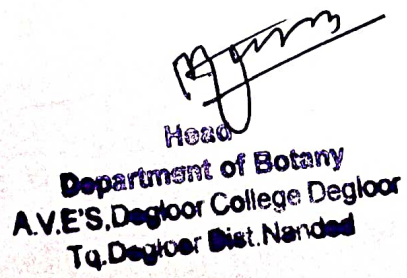 Head
Department of Botany
A.V.E'S,Degloor College Degloor
Tq.Degloor Dist.Nanded